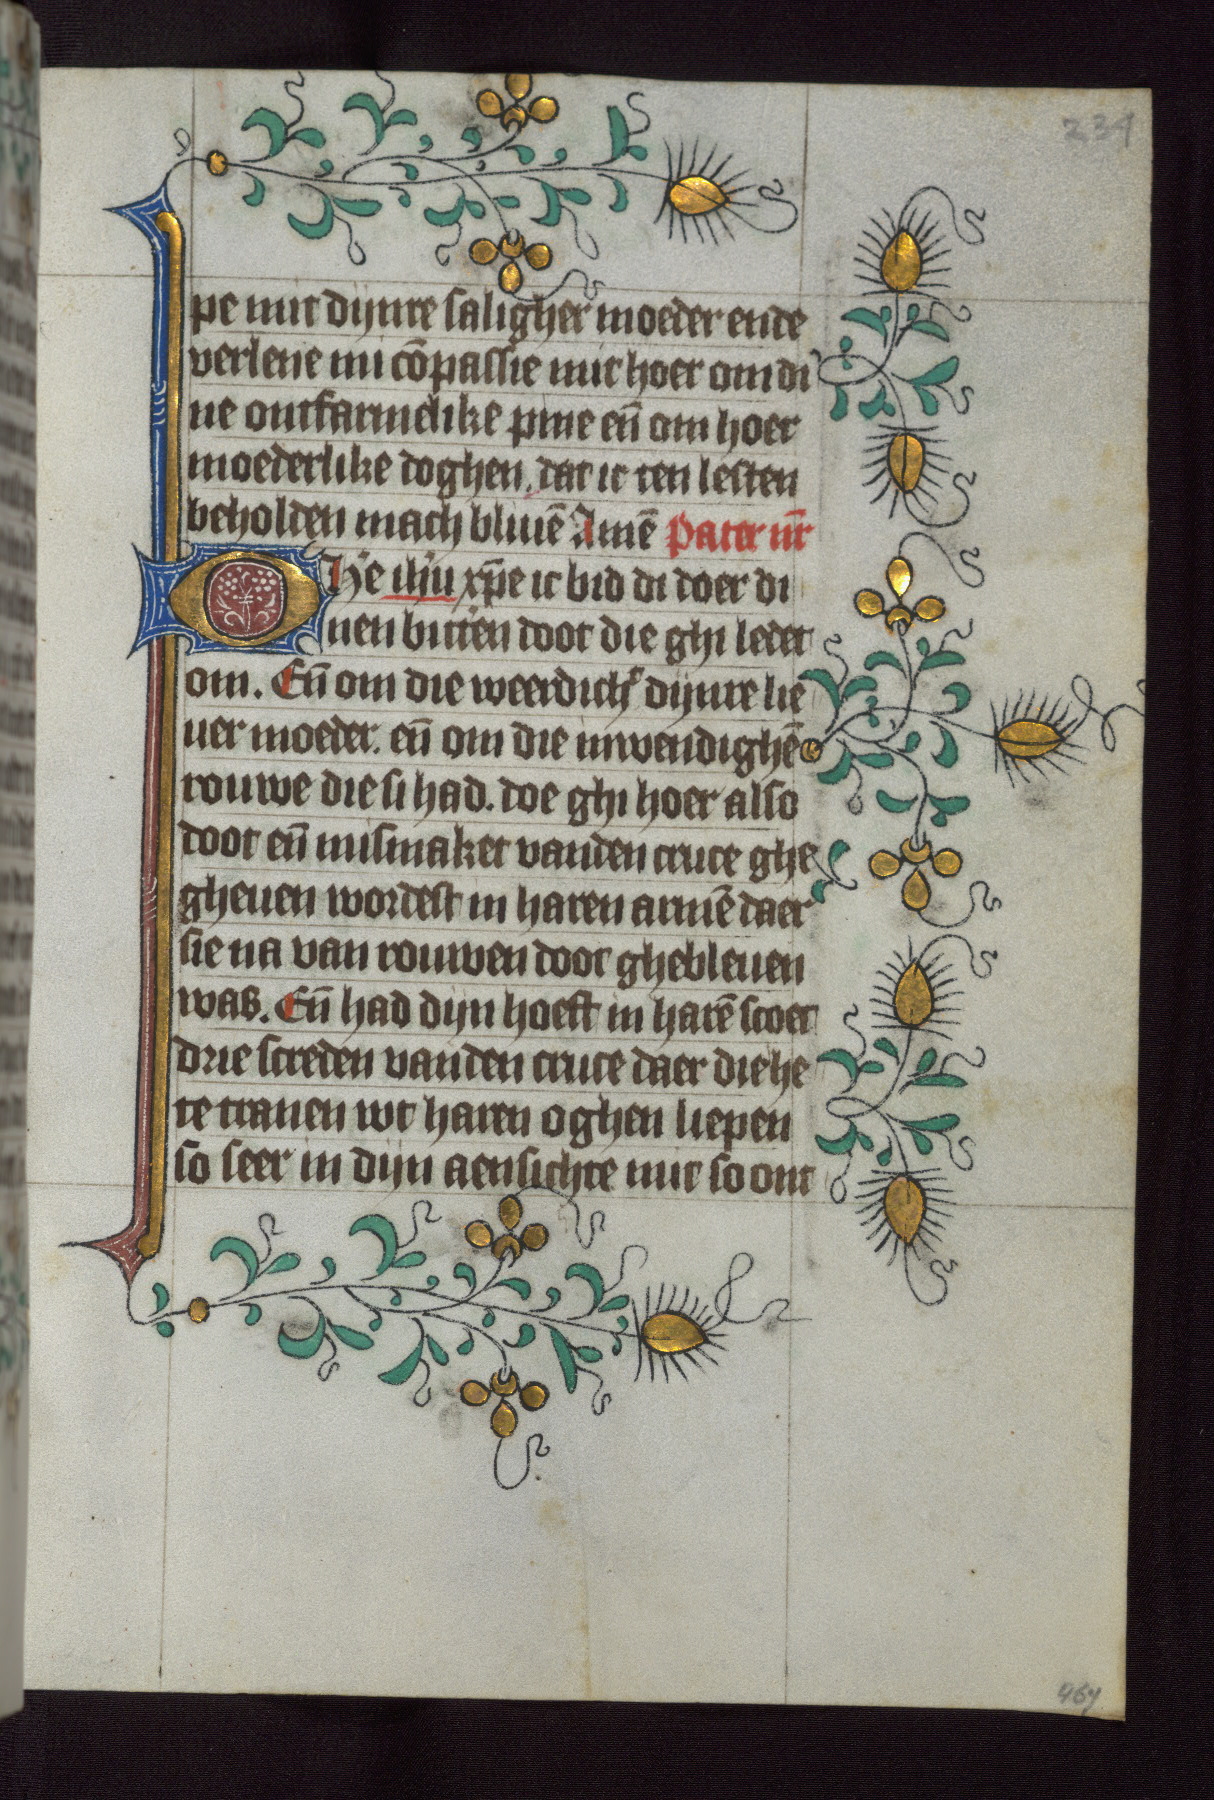 234
pe mit dijnre saligher moeder ende
verlene mi cōpassie mit hoer om di
ne ontfarmelike pine eñ om hoer
moederlike doghen. dat ic ten lesten
beholden mach bliuē Amē Pater nr̄
O Hē ihū xp̄e ic bid di doer di
nen bittēn doot die ghi ledet
om. Eñ om die weerdich dijnre lie
uer moeder. eñ om die inwendighē
rouwe die si had. doe ghi hoer also
doot eñ mismaket vanden cruce ghe
gheuen wordest in haren armē daer
sie na van rouwen doot ghebleuen
was. Eñ had dijn hoeft in harē scoet
drie screden vanden cruce daer die he
te tranen wt haren oghen liepen
so seer in dijn aensichte mit so ont
467